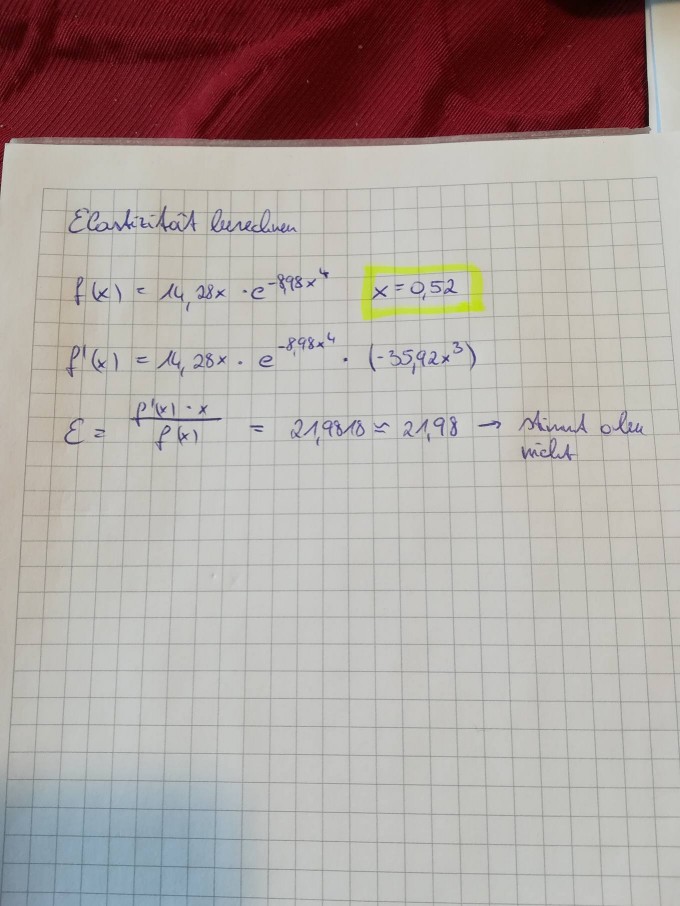 Elastizität berechnen
f(x) = 14,28x · e^-8,98x^4 x = 0,52
f'(x) = 14,28x · e^-8,98x^4 · (-35,92x^3)
ε = f'(x) · x / f(x) = 21,9818 ≈ 21,98 → stimmt aber
nicht